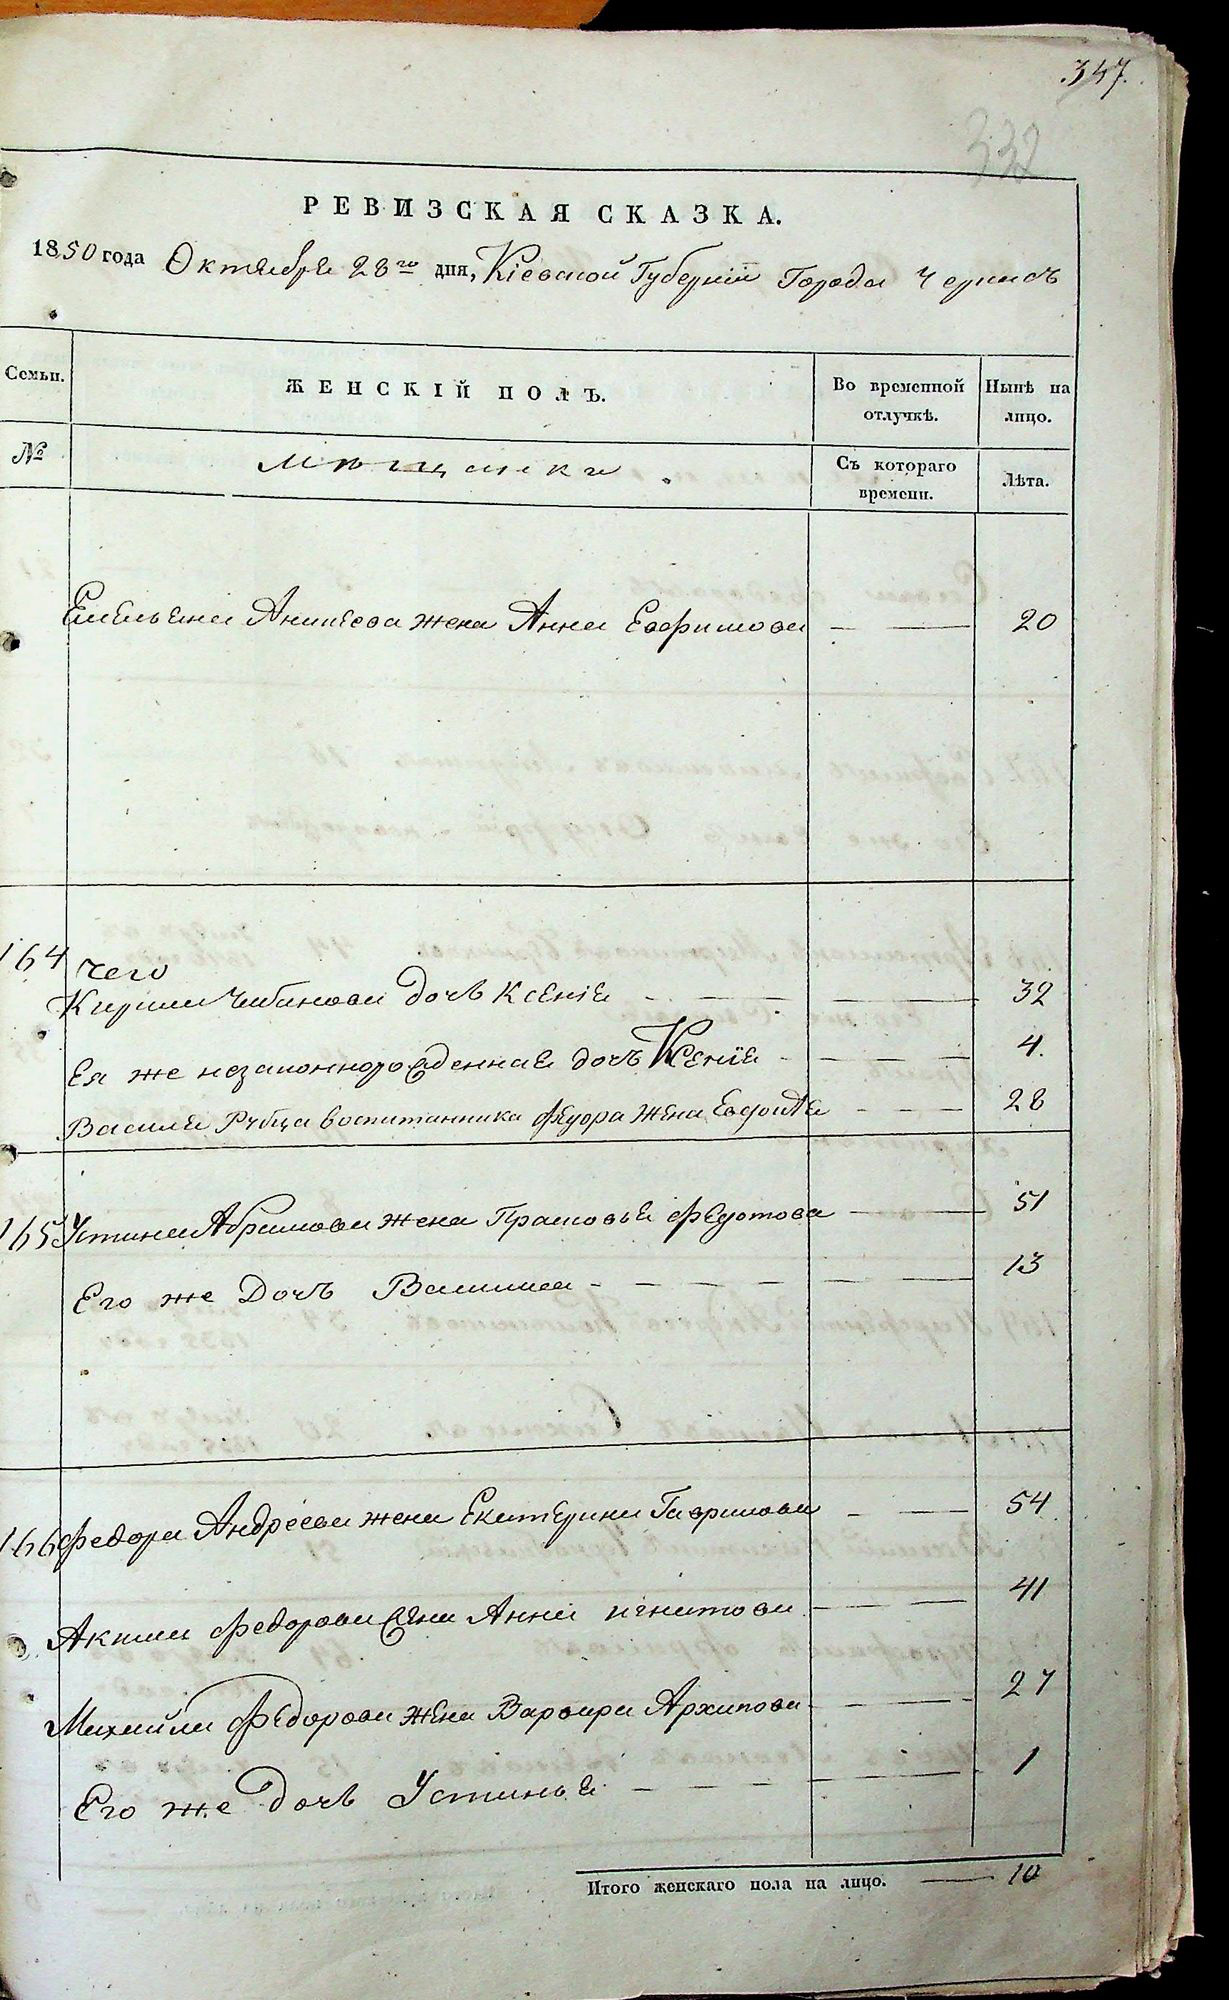 347.
332
РЕВИЗСКАЯ СКАЗКА.
1850 года Октября 28го дня, Кіевской Губерніи Города Черкасъ
Семьи. ЖЕНСКІЙ ПОЛЪ. Во временной отлучкѣ. Нынѣ на лицо.
№ Мѣщанки. Съ котораго времени. Лѣта.
Емельяна Аникѣева жена Анна Евфимова — — 20
164 чего
Кирила Чабанова дочь Ксенія — — — — 32
Ея же незаконнорожденная дочь Ксенія — — — 4.
Василя Рубца воспитанника Феудора жена Евдотья — — — 28
165 Устина Абрамова жена Прасковья Федотова — — 51
Его же Дочь Василиса — — — — — — 13
166 Федора Андреева жена Екатерина Гаврилова — — 54
Акима Федорова жена Анна Игнатова — — 41
Михайла Федорова жена Варвара Архипова — — 27
Его же дочь Устинья — — — — — 1
Итого женскаго пола на лицо. — 10